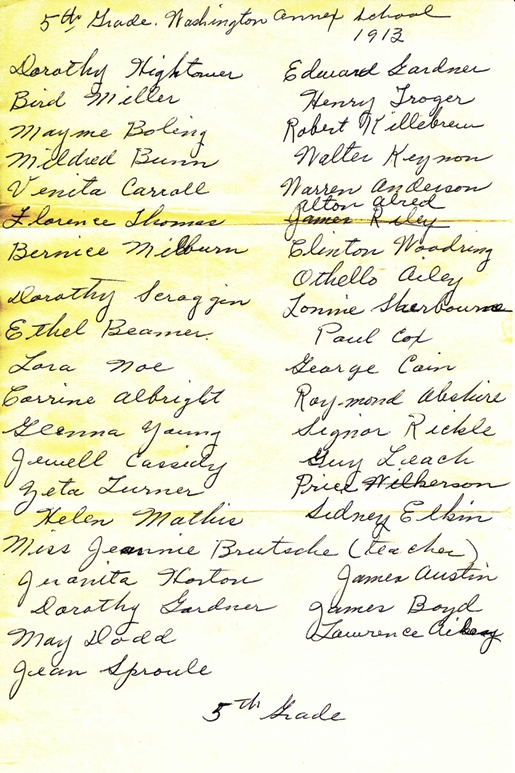 5th Grade. Washington Annex School
1913
Dorothy Hightower
Bird Miller
Mayme Boling
Mildred Bunn
Venita Carroll
Florence Thomas
Bernice Milburn
Dorothy Scroggin
Ethel Beamer.
Lora Noe
Corrine Albright
Glenna Young
Jewell Cassidy
Zeta Turner
Helen Mathis
Edward Gardner
Henry Troger
Robert Killebrew
Walter Keynon
Warren Anderson
Alton Alred
James Riley
Clinton Woodring
Othello Ailey
Lonnie Sherbourne
Paul Cox
George Cain
Raymond Abshire
Signor Rickle
Guy Leach
Price Wilkerson
Sidney Elkin
Miss Jeannie Brutsche (teacher)
Juanita Horton
Dorothy Gardner
May Dodd
Jean Sproule
James Austin
James Boyd
Lawrence
5th Grade